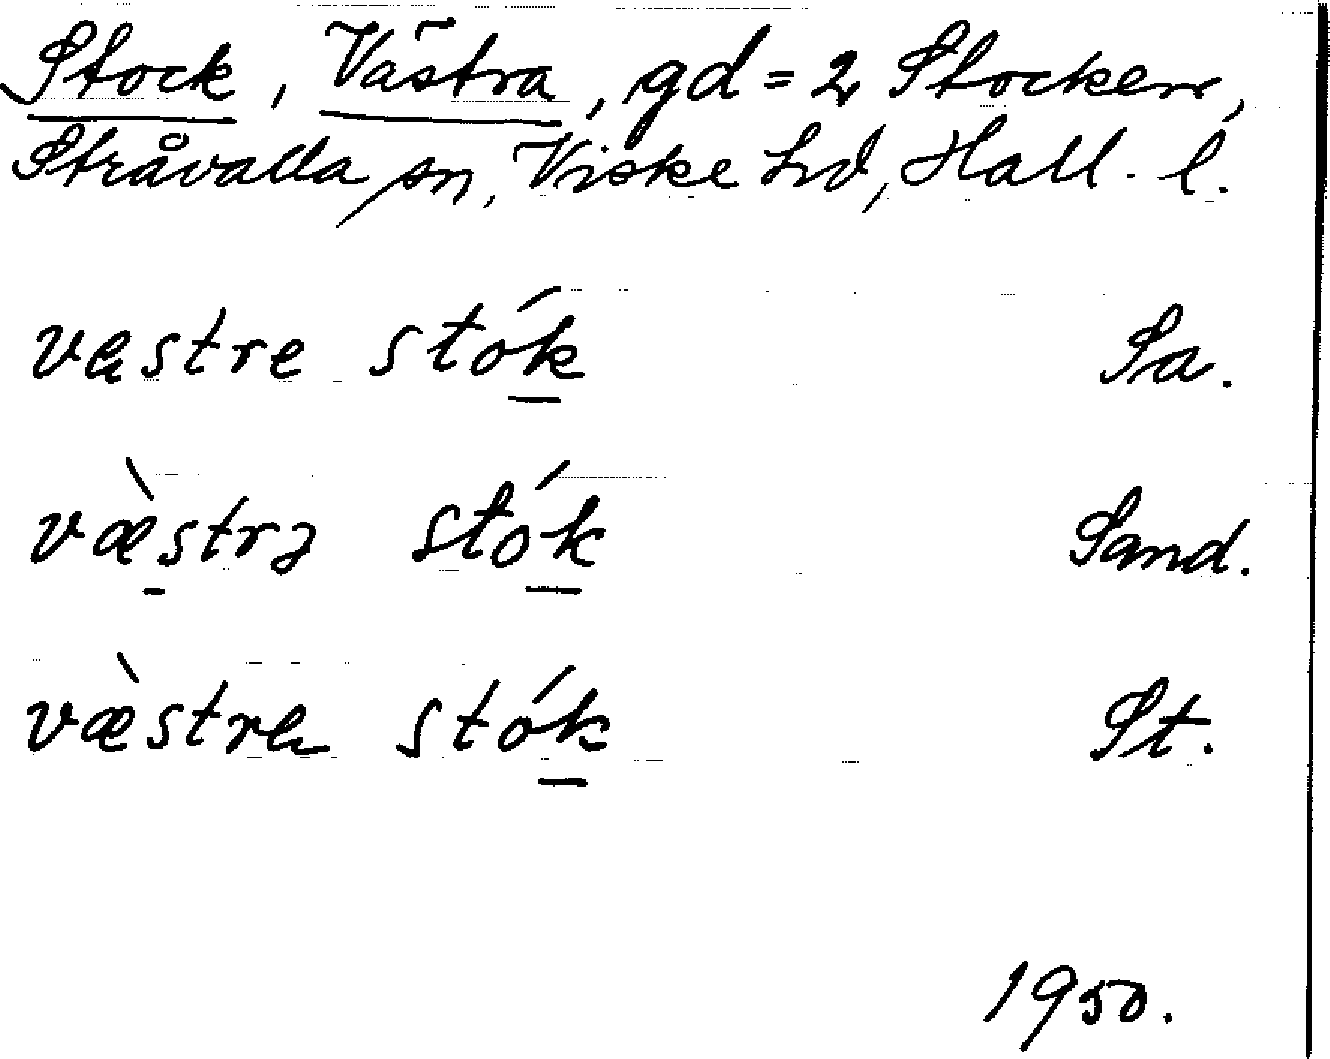 Stock, Västra, gd = 2 Stocken,
Stråvalla sn, Viske hd, Hall. l.
vastre stók Sa.
væ̀strə stók Sand.
væ̀stra stók St.
1950.